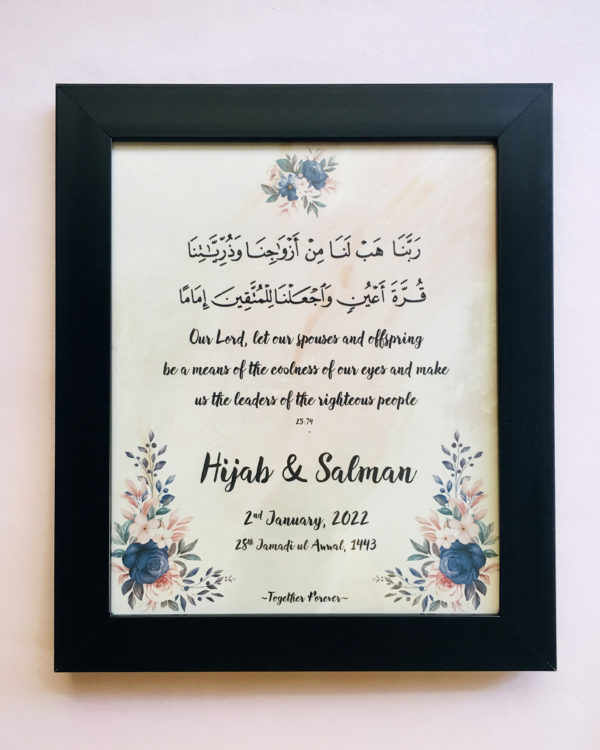 رَبَّنَا هَبْ لَنَا مِنْ أَزْوَاجِنَا وَذُرِّيَّاتِنَا
قُرَّةَ أَعْيُنٍ وَاجْعَلْنَا لِلْمُتَّقِينَ إِمَامًا
Our Lord, let our spouses and offspring
be a means of the coolness of our eyes and make
us the leaders of the righteous people
25:74
Hijab & Salman
2nd January, 2022
28th Jamadi ul Awwal, 1443
~Together Forever~